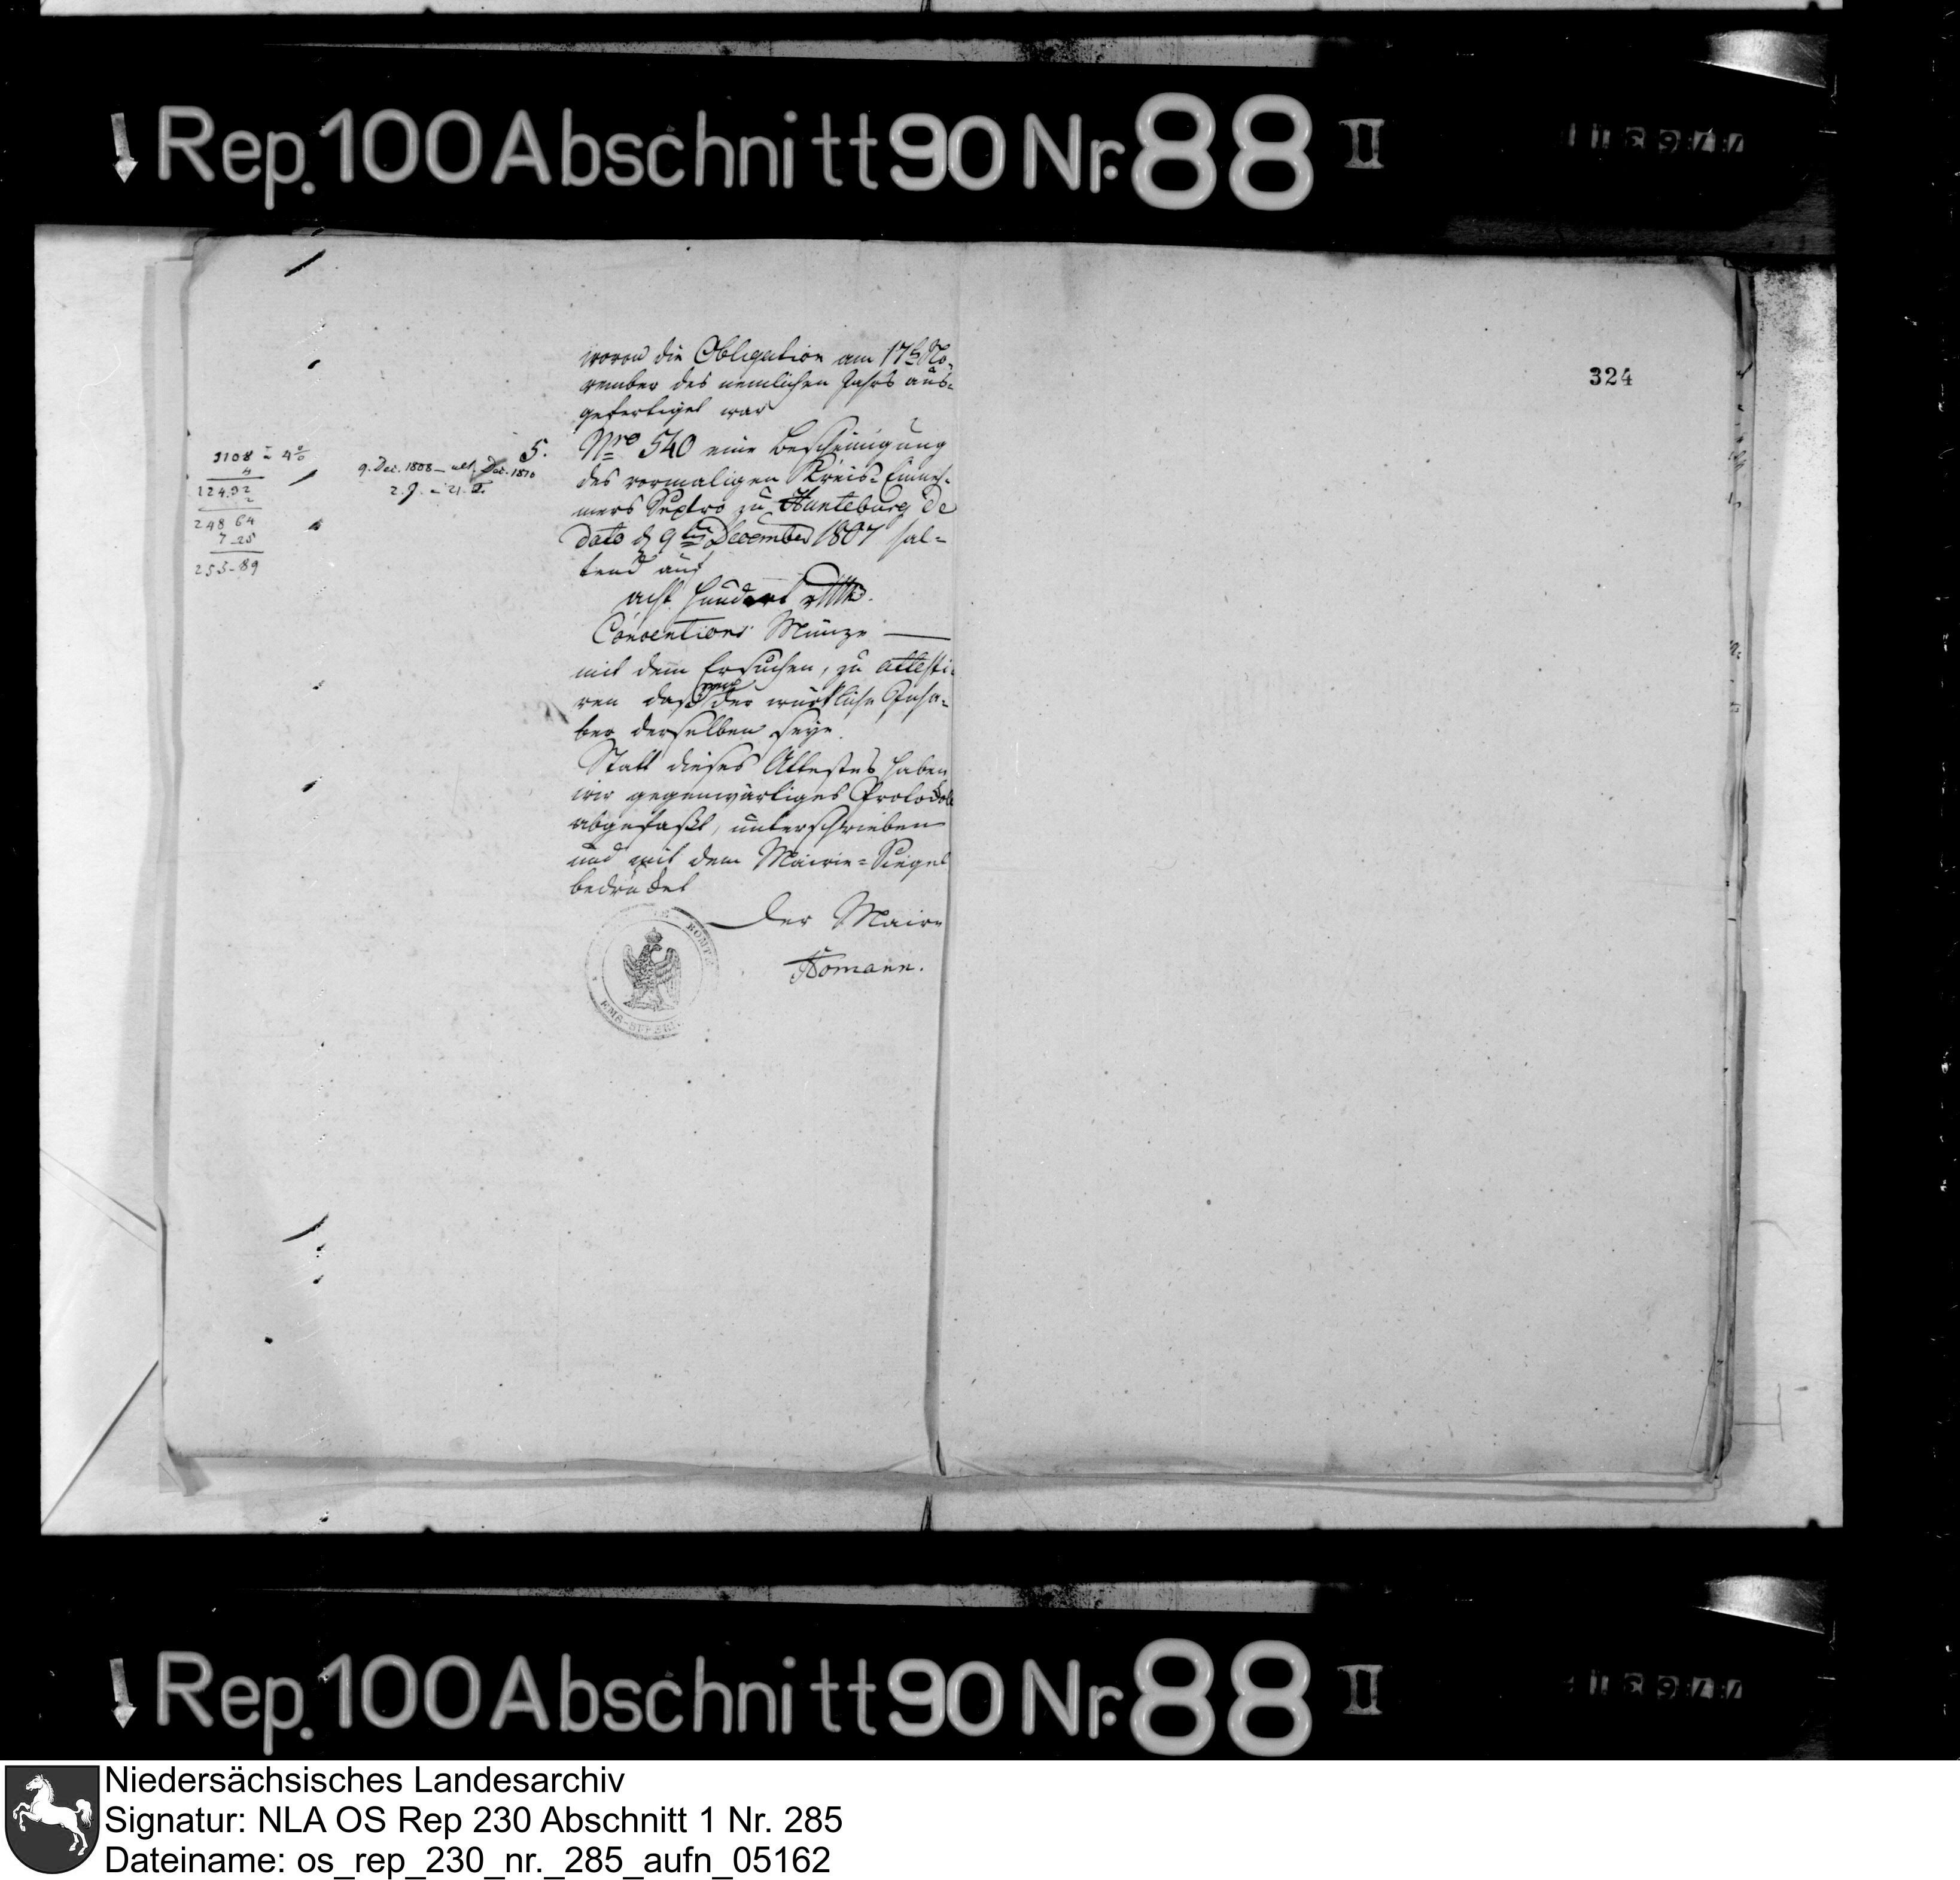 Rep. 100 Abschnitt 90 Nr. 88 II
324
wovon die Obligation am 17t No-
vember des nemlichen Jahrs aus-
gefertiget war
5. Nro 540 eine Bescheinigung
des vormaligen Kreis-Einneh-
mers Sextro zu Hunteburg de
dato d 9ten December 1807 hal-
tend auf
acht hundert
Conventions Münze
mit dem Ersuchen, zu attesti-
ren daß der würkliche Inha-
ber derselben seye.
Statt dieses Attestes haben
wir gegenwärtiges Protocoll
abgefaßt, unterschrieben
und mit dem Mairie-Siegel
bedrucket
Der Maire
Homann.
BOMTE
EMS-SUPERI
9. Dec. 1808 – ult. Dec. 1810
2. J. – 21. T.
3108 = 4 %
4
124.32
2
248 64
7-25
255-89
Rep. 100 Abschnitt 90 Nr. 88 II
Niedersächsisches Landesarchiv
Signatur: NLA OS Rep 230 Abschnitt 1 Nr. 285
Dateiname: os_rep_230_nr._285_aufn_05162